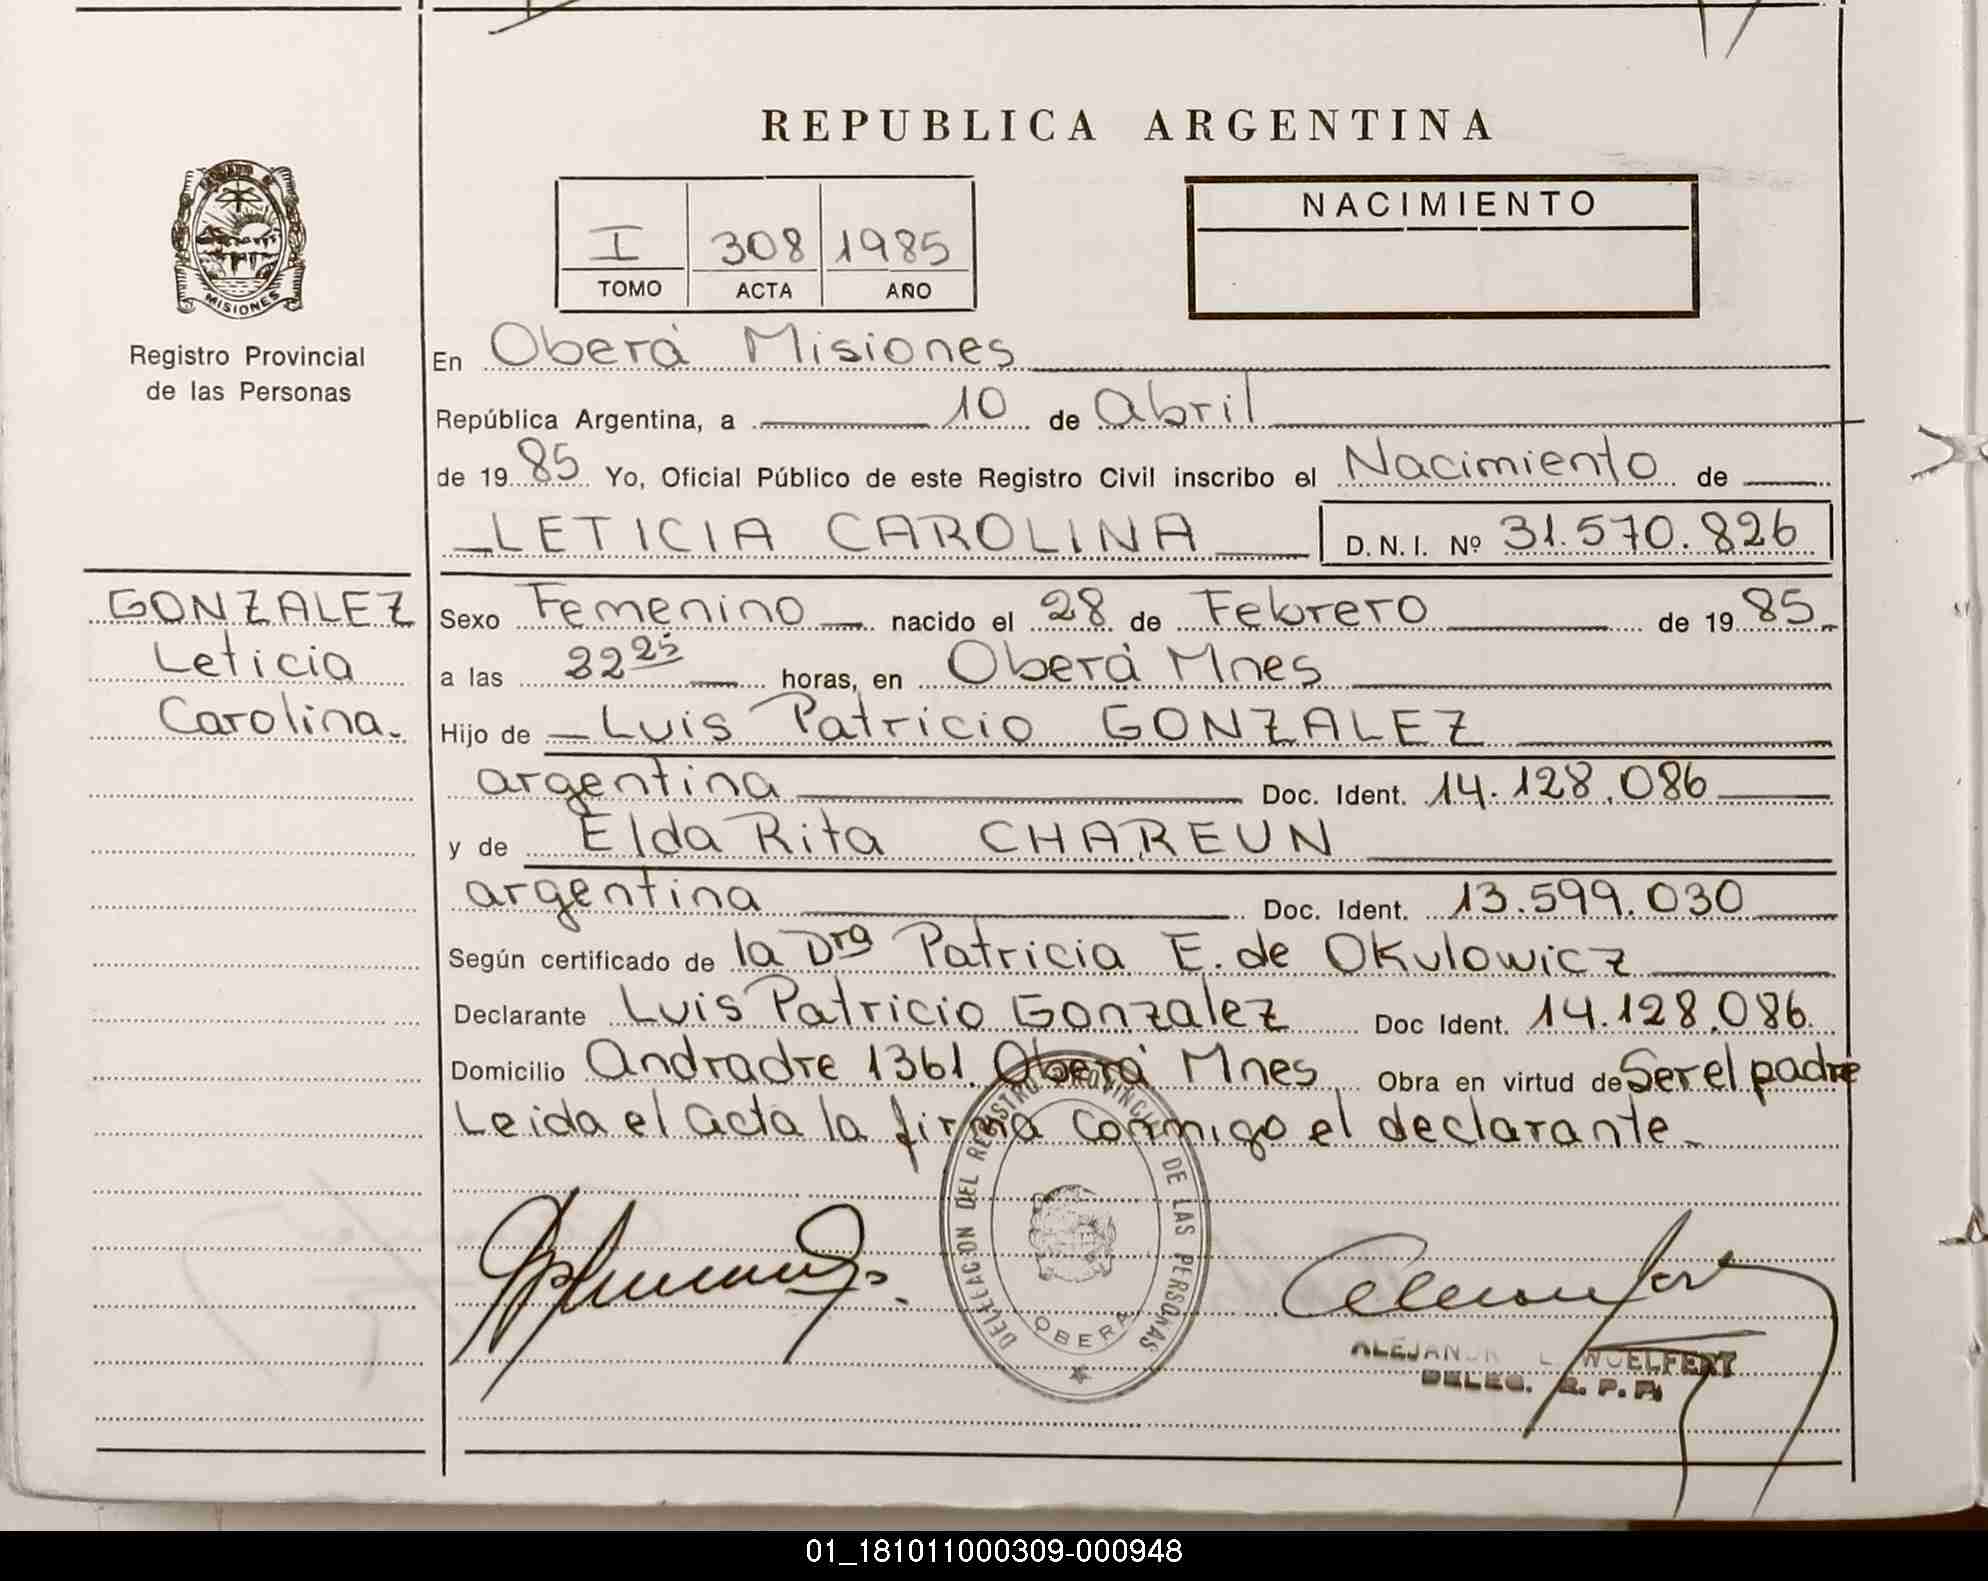 REPUBLICA ARGENTINA
NACIMIENTO
I 308 1985
TOMO ACTA AÑO
MISIONES
Registro Provincial
de las Personas
En Oberá Misiones
República Argentina, a 10 de Abril
de 1985 Yo, Oficial Público de este Registro Civil inscribo el Nacimiento de
LETICIA CAROLINA D.N.I. Nº 31.570.826
GONZALEZ
Leticia
Carolina.
Sexo Femenino nacido el 28 de Febrero de 1985
a las 22 25 horas, en Oberá Mnes
Hijo de Luis Patricio GONZALEZ
argentina Doc. Ident. 14.128.086
y de Elda Rita CHAREUN
argentina Doc. Ident. 13.599.030
Según certificado de la Dra Patricia E. de Okulowicz
Declarante Luis Patricio Gonzalez Doc Ident. 14.128.086
Domicilio Andradre 1361. Oberá Mnes Obra en virtud de Ser el padre
Leida el acta la firma conmigo el declarante.
DELEGACION DEL REGISTRO PROVINCIAL DE LAS PERSONAS
OBERA
WOELFERT
DELEG. R. P. P.
01_181011000309-000948